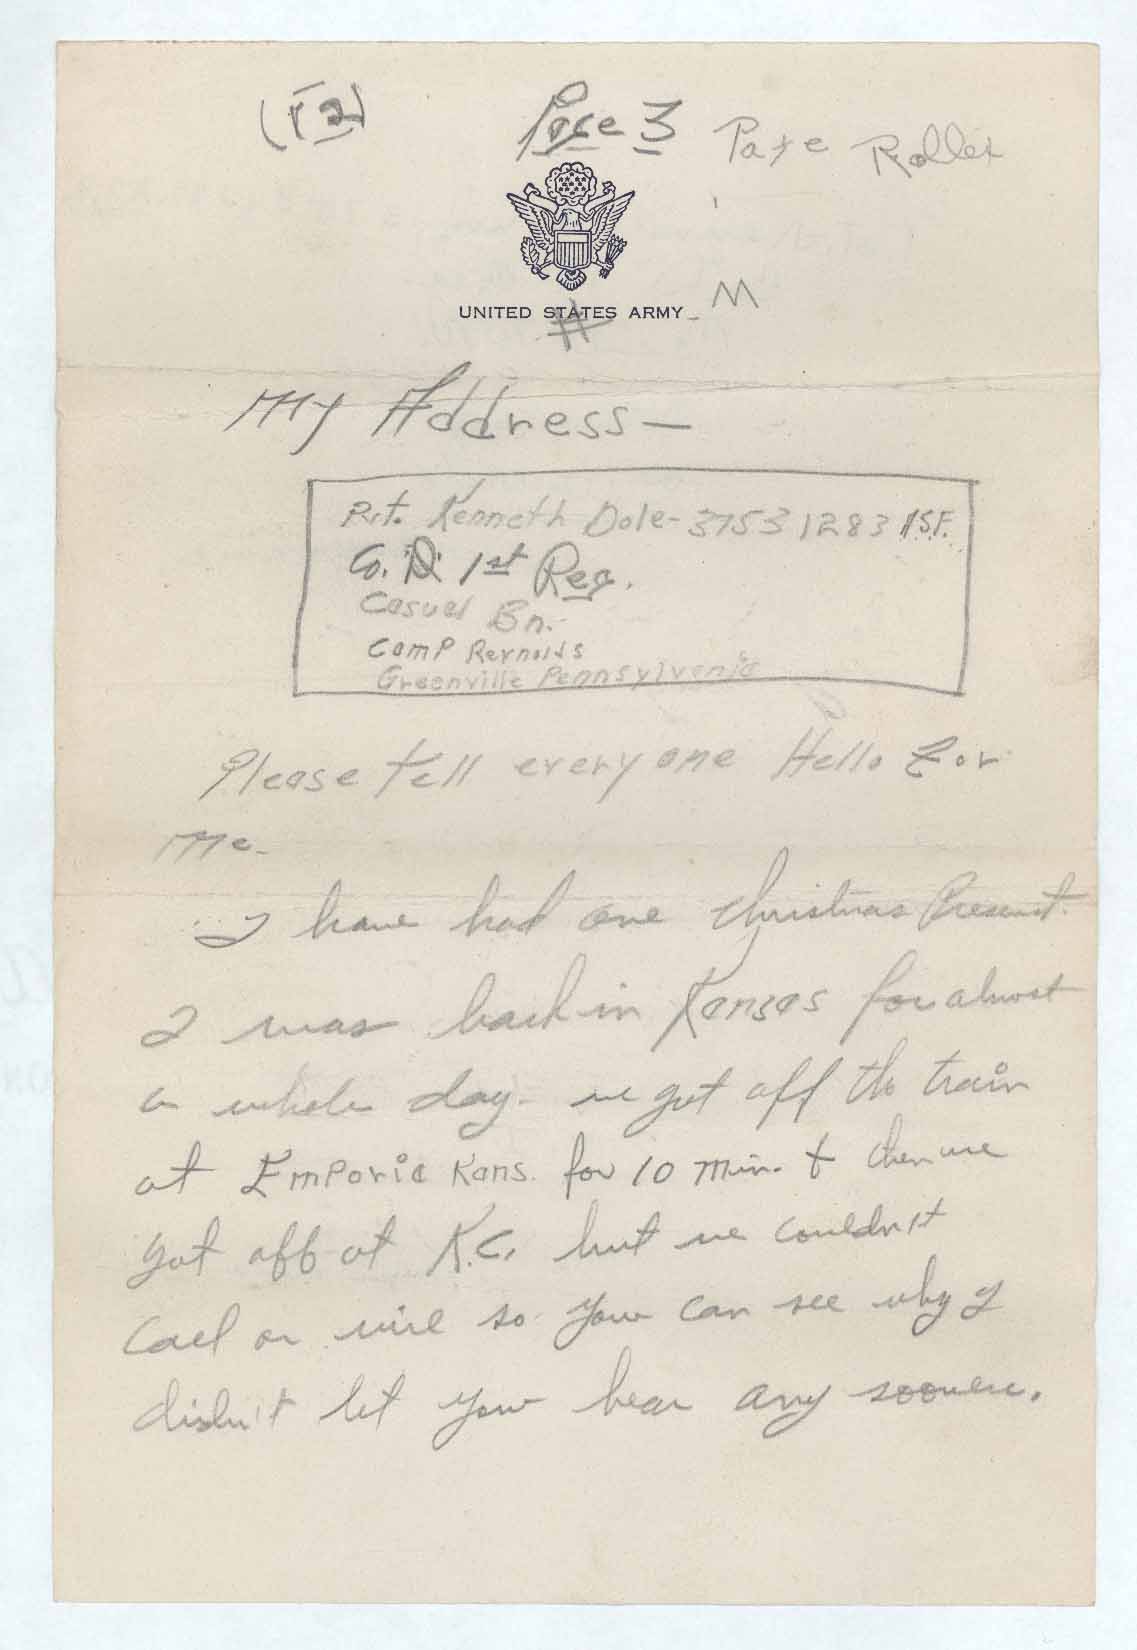 Page 3
UNITED STATES ARMY
My Address —
Pvt. Kenneth Dole - 37531283 A.S.F.
Co. "D" 1st Reg.
Casual Bn.
Camp Reynolds
Greenville Pennsylvania
Please tell everyone Hello For
Me.
I have had one Christmas Present.
I was back in Kansas for almost
a whole day. we got off the train
at Emporia Kans. for 10 Min. & then we
got off at K.C. but we couldn't
Call or wire so you can see why I
didn't let you hear any sooner.